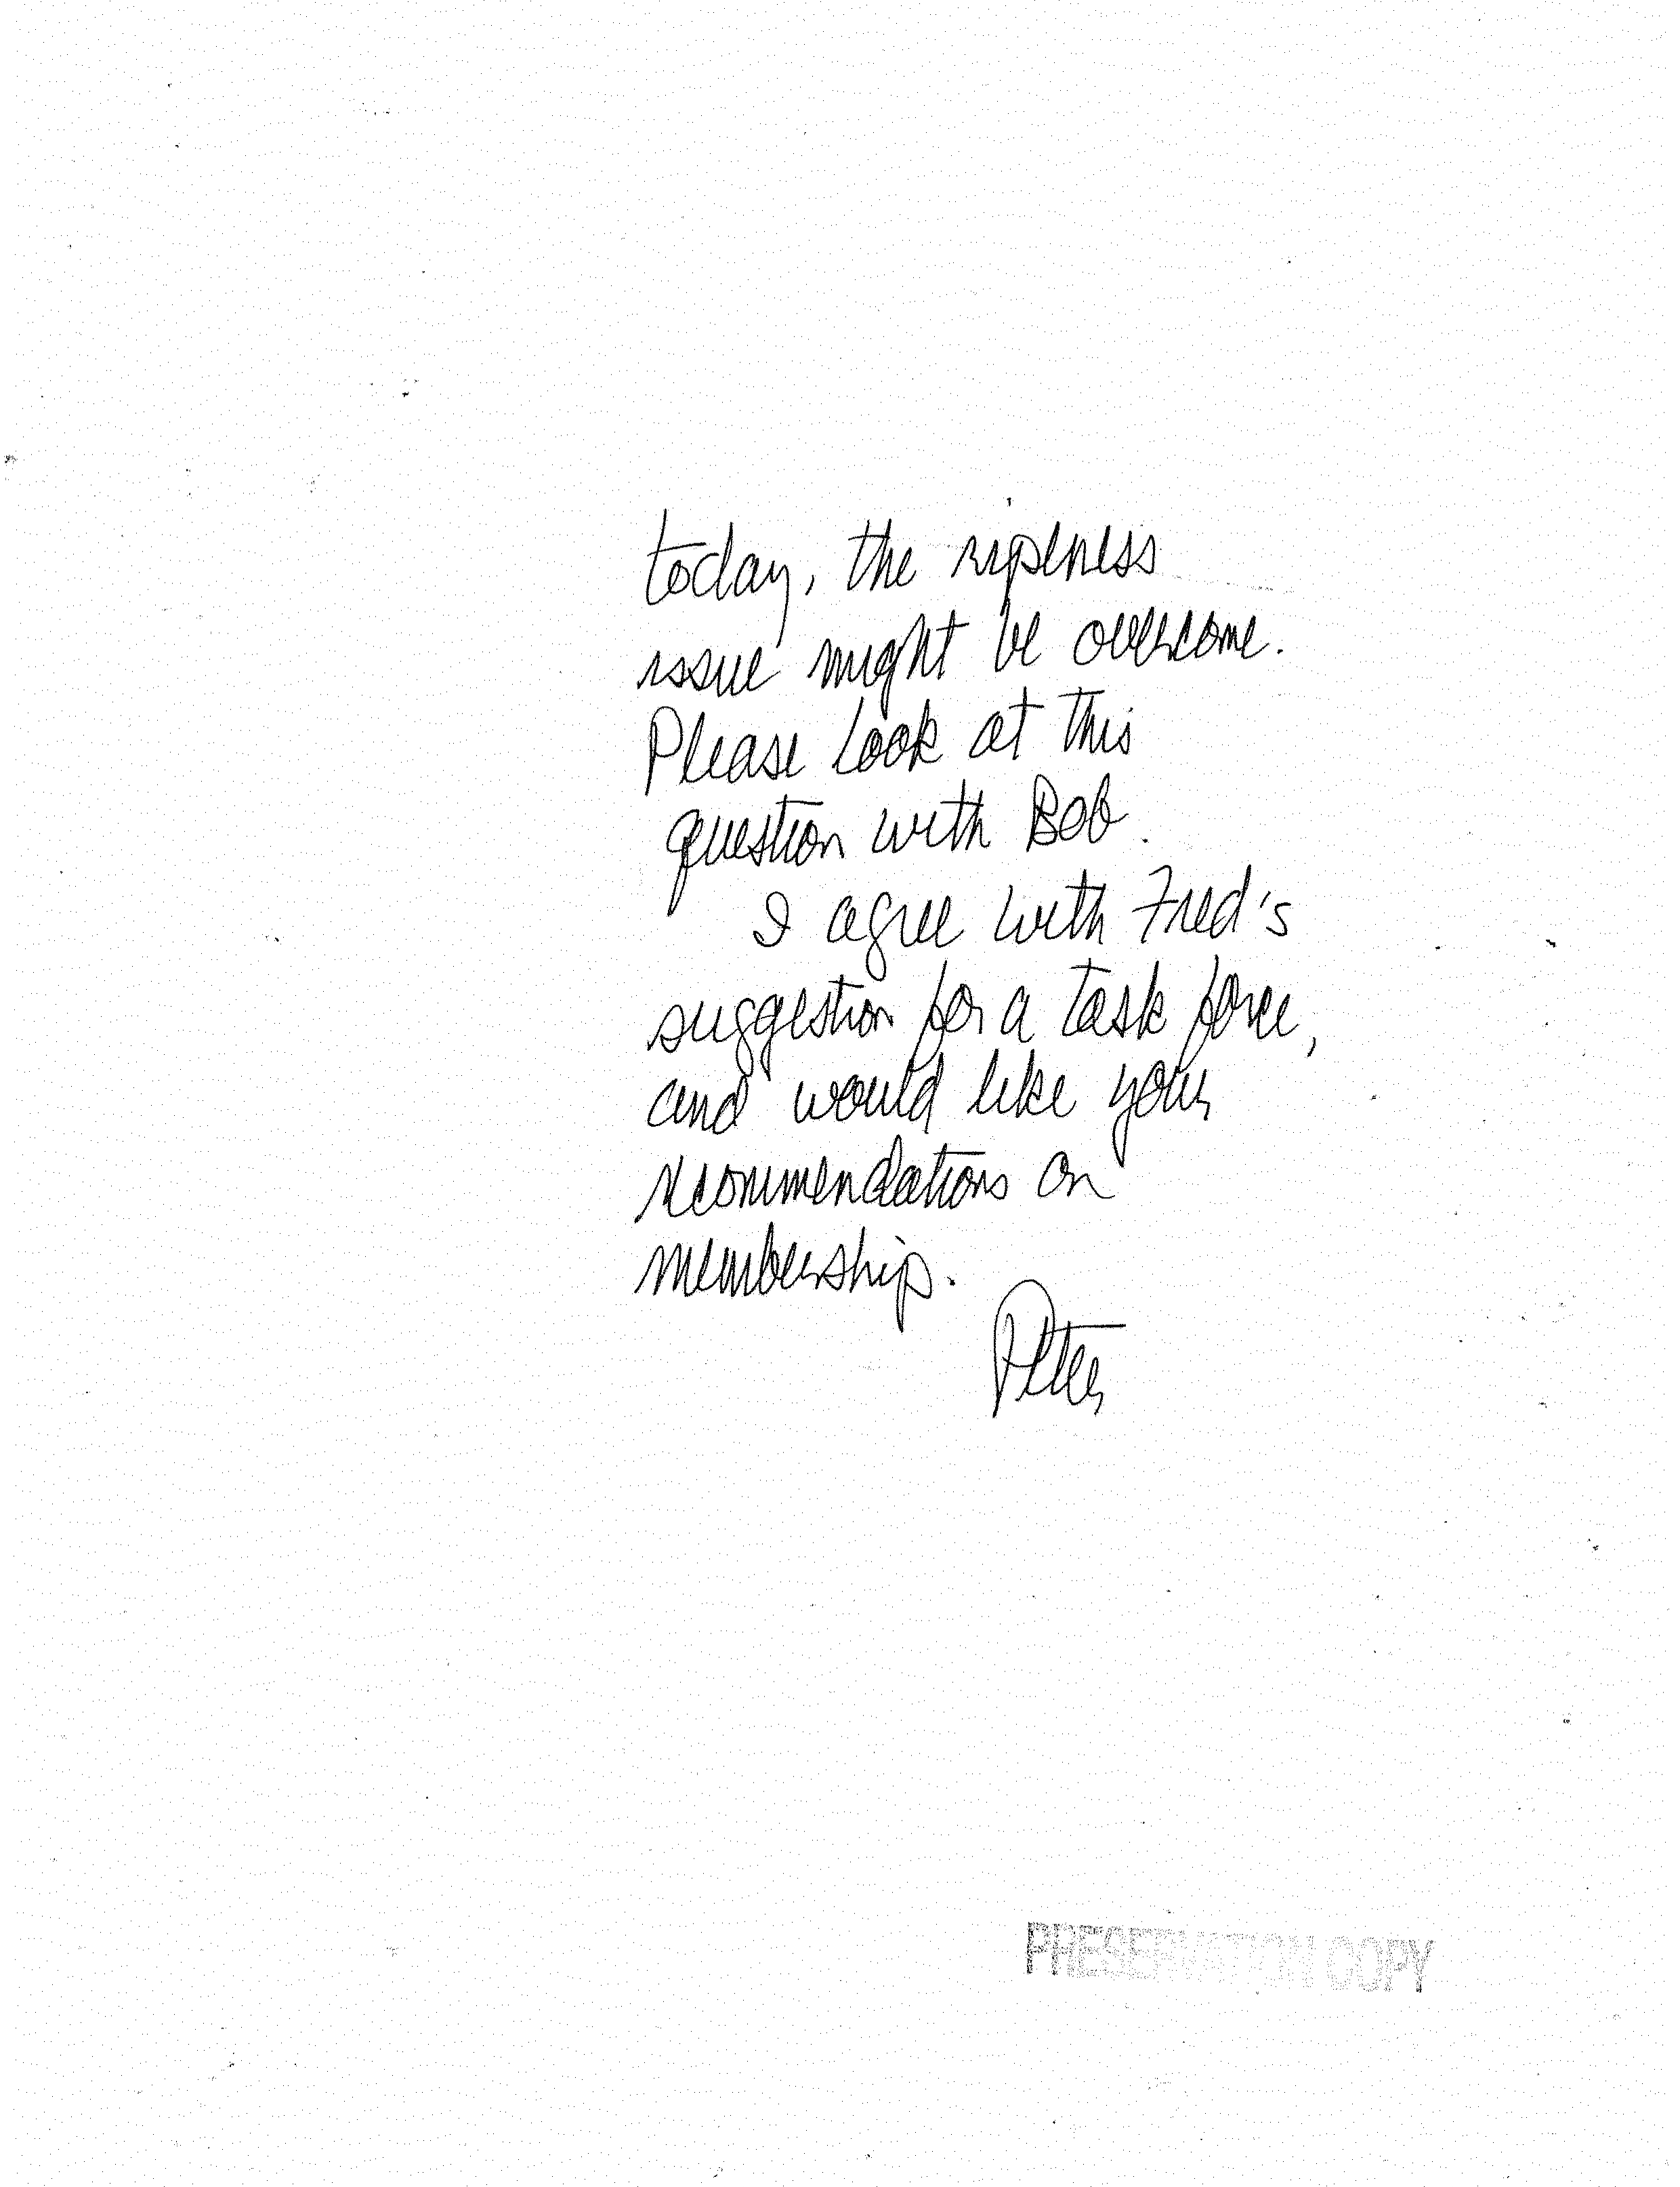 today, the ripeness
issue might be overcome.
Please look at this
question with Bob.
I agree with Fred's
suggestion for a task force,
and would like your
recommendations on
membership.
Peter
PRESERVATION COPY